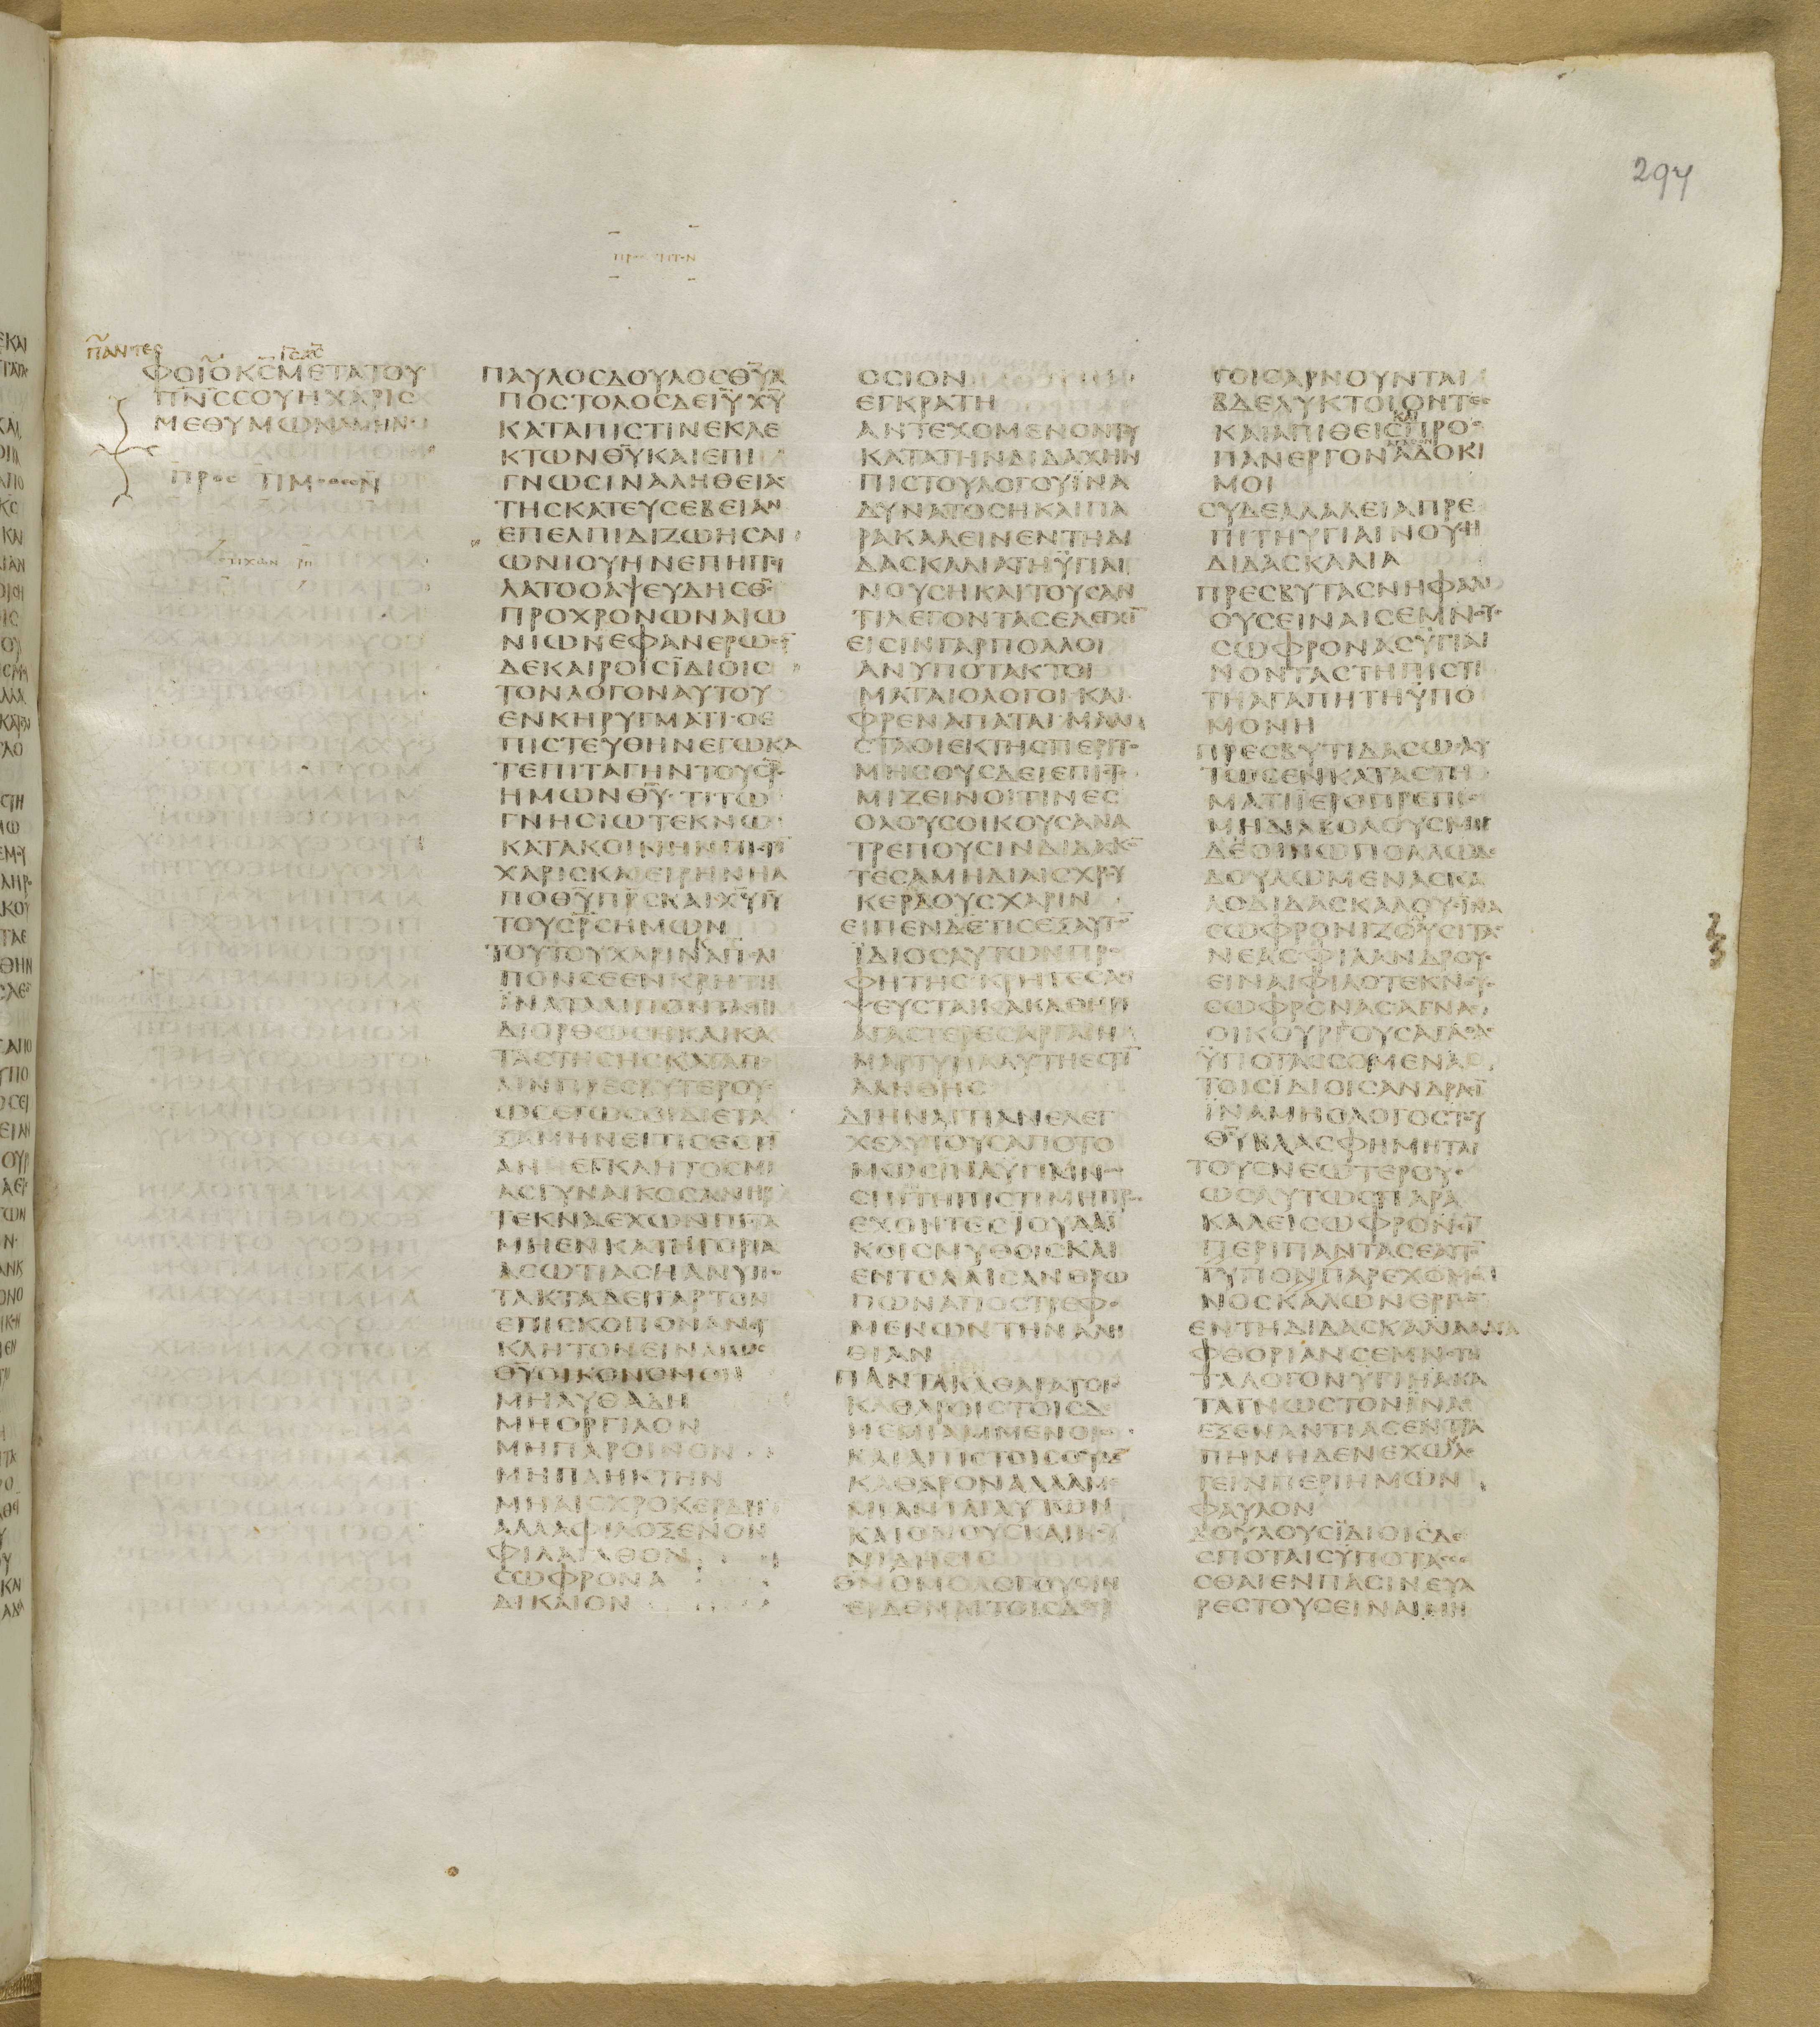 297
ΠΡΟϹ ΤΙΤΟΝ
ΠΑΝΤΕϹ
ΙϹ ΧϹ
ΦΟΙ Ο ΚϹ ΜΕΤΑ ΤΟΥ
ΠΝϹ ϹΟΥ Η ΧΑΡΙϹ
ΜΕΘ ΥΜΩΝ ΑΜΗΝ
ΠΡΟϹ ΤΙΜΟΘΕΟΝ
ϹΤΙΧΩΝ ΡΠ
ΠΑΥΛΟϹ ΔΟΥΛΟϹ ΘΥ Α
ΠΟϹΤΟΛΟϹ ΔΕ ΙΥ ΧΥ
ΚΑΤΑ ΠΙϹΤΙΝ ΕΚΛΕ
ΚΤΩΝ ΘΥ ΚΑΙ ΕΠΙ
ΓΝΩϹΙΝ ΑΛΗΘΕΙΑϹ
ΤΗϹ ΚΑΤ ΕΥϹΕΒΕΙΑΝ
ΕΠ ΕΛΠΙΔΙ ΖΩΗϹ ΑΙ
ΩΝΙΟΥ ΗΝ ΕΠΗΓΓΙ
ΛΑΤΟ Ο ΑΨΕΥΔΗϹ ΘϹ
ΠΡΟ ΧΡΟΝΩΝ ΑΙΩ
ΝΙΩΝ ΕΦΑΝΕΡΩϹΕ
ΔΕ ΚΑΙΡΟΙϹ ΙΔΙΟΙϹ
ΤΟΝ ΛΟΓΟΝ ΑΥΤΟΥ
ΕΝ ΚΗΡΥΓΜΑΤΙ Ο Ε
ΠΙϹΤΕΥΘΗΝ ΕΓΩ ΚΑ
Τ ΕΠΙΤΑΓΗΝ ΤΟΥ ϹΡϹ
ΗΜΩΝ ΘΥ ΤΙΤΩ
ΓΝΗϹΙΩ ΤΕΚΝΩ
ΚΑΤΑ ΚΟΙΝΗΝ ΠΙϹΤΙ
ΧΑΡΙϹ ΚΑΙ ΕΙΡΗΝΗ Α
ΠΟ ΘΥ ΠΡϹ ΚΑΙ ΧΥ ΙΥ
ΤΟΥ ϹΡϹ ΗΜΩΝ
ΤΟΥΤΟΥ ΧΑΡΙΝ ΑΠΕΛΙ
ΠΟΝ ϹΕ ΕΝ ΚΡΗΤΗ
ΙΝΑ ΤΑ ΛΙΠΟΝΤΑ ΕΠΙ
ΔΙΟΡΘΩϹΗ ΚΑΙ ΚΑ
ΤΑϹΤΗϹΗϹ ΚΑΤΑ ΠΟ
ΛΙΝ ΠΡΕϹΒΥΤΕΡΟΥϹ
ΩϹ ΕΓΩ ϹΟΙ ΔΙΕΤΑ
ΞΑΜΗΝ ΕΙ ΤΙϹ ΕϹΤΙ
ΑΝΕΓΚΛΗΤΟϹ ΜΙ
ΑϹ ΓΥΝΑΙΚΟϹ ΑΝΗΡ
ΤΕΚΝΑ ΕΧΩΝ ΠΙϹΤΑ
ΜΗ ΕΝ ΚΑΤΗΓΟΡΙΑ
ΑϹΩΤΙΑϹ Η ΑΝΥΠΟ
ΤΑΚΤΑ ΔΕΙ ΓΑΡ ΤΟΝ
ΕΠΙϹΚΟΠΟΝ ΑΝΕΓ
ΚΛΗΤΟΝ ΕΙΝΑΙ ΩϹ
ΘΥ ΟΙΚΟΝΟΜΟΝ
ΜΗ ΑΥΘΑΔΗ
ΜΗ ΟΡΓΙΛΟΝ
ΜΗ ΠΑΡΟΙΝΟΝ
ΜΗ ΠΛΗΚΤΗΝ
ΜΗ ΑΙϹΧΡΟΚΕΡΔΗ
ΑΛΛΑ ΦΙΛΟΞΕΝΟΝ
ΦΙΛΑΓΑΘΟΝ
ϹΩΦΡΟΝΑ
ΔΙΚΑΙΟΝ
ΟϹΙΟΝ
ΕΓΚΡΑΤΗ
ΑΝΤΕΧΟΜΕΝΟΝ ΤΟΥ
ΚΑΤΑ ΤΗΝ ΔΙΔΑΧΗΝ
ΠΙϹΤΟΥ ΛΟΓΟΥ ΙΝΑ
ΔΥΝΑΤΟϹ Η ΚΑΙ ΠΑ
ΡΑΚΑΛΕΙΝ ΕΝ ΤΗ ΔΙ
ΔΑϹΚΑΛΙΑ ΤΗ ΥΓΙΑΙ
ΝΟΥϹΗ ΚΑΙ ΤΟΥϹ ΑΝ
ΤΙΛΕΓΟΝΤΑϹ ΕΛΕΓΧΙΝ
ΕΙϹΙΝ ΓΑΡ ΠΟΛΛΟΙ
ΑΝΥΠΟΤΑΚΤΟΙ
ΜΑΤΑΙΟΛΟΓΟΙ ΚΑΙ
ΦΡΕΝΑΠΑΤΑΙ ΜΑΛΙ
ϹΤΑ ΟΙ ΕΚ ΤΗϹ ΠΕΡΙΤΟ
ΜΗϹ ΟΥϹ ΔΕΙ ΕΠΙϹΤΟ
ΜΙΖΕΙΝ ΟΙΤΙΝΕϹ
ΟΛΟΥϹ ΟΙΚΟΥϹ ΑΝΑ
ΤΡΕΠΟΥϹΙΝ ΔΙΔΑϹΚΟΝ
ΤΕϹ Α ΜΗ ΔΙ ΑΙϹΧΡΟΥ
ΚΕΡΔΟΥϹ ΧΑΡΙΝ
ΕΙΠΕΝ ΔΕ ΤΙϹ ΕΞ ΑΥΤΩΝ
ΙΔΙΟϹ ΑΥΤΩΝ ΠΡΟ
ΦΗΤΗϹ ΚΡΗΤΕϹ ΑΕΙ
ΨΕΥϹΤΑΙ ΚΑΚΑ ΘΗΡΙΑ
ΓΑϹΤΕΡΕϹ ΑΡΓΑΙ Η
ΜΑΡΤΥΡΙΑ ΑΥΤΗ ΕϹΤΙΝ
ΑΛΗΘΗϹ
ΔΙ ΗΝ ΑΙΤΙΑΝ ΕΛΕΓ
ΧΕ ΑΥΤΟΥϹ ΑΠΟΤΟ
ΜΩϹ ΙΝΑ ΥΓΙΑΙΝΩ
ϹΙΝ ΤΗ ΠΙϹΤΙ ΜΗ ΠΡΟϹ
ΕΧΟΝΤΕϹ ΙΟΥΔΑΙ
ΚΟΙϹ ΜΥΘΟΙϹ ΚΑΙ
ΕΝΤΟΛΑΙϹ ΑΝΘΡΩ
ΠΩΝ ΑΠΟϹΤΡΕΦΟ
ΜΕΝΩΝ ΤΗΝ ΑΛΗ
ΘΙΑΝ
ΠΑΝΤΑ ΚΑΘΑΡΑ ΤΟΙϹ
ΚΑΘΑΡΟΙϹ ΤΟΙϹ ΔΕ
ΜΕΜΙΑΜΜΕΝΟΙϹ
ΚΑΙ ΑΠΙϹΤΟΙϹ ΟΥΔΕ
ΚΑΘΑΡΟΝ ΑΛΛΑ ΜΕ
ΜΙΑΝΤΑΙ ΑΥΤΩΝ
ΚΑΙ Ο ΝΟΥϹ ΚΑΙ Η ϹΥ
ΝΙΔΗϹΙϹ
ΘΝ ΟΜΟΛΟΓΟΥϹΙΝ
ΕΙΔΕΝΑΙ ΤΟΙϹ ΔΕ ΕΡ
ΓΟΙϹ ΑΡΝΟΥΝΤΑΙ
ΒΔΕΛΥΚΤΟΙ ΟΝΤΕϹ
ΚΑΙ
ΚΑΙ ΑΠΙΘΕΙϹ ΠΡΟϹ
ΑΓΑΘΟΝ
ΠΑΝ ΕΡΓΟΝ ΑΔΟΚΙ
ΜΟΙ
ϹΥ ΔΕ ΛΑΛΕΙ Α ΠΡΕ
ΠΙ ΤΗ ΥΓΙΑΙΝΟΥϹΗ
ΔΙΔΑϹΚΑΛΙΑ
ΠΡΕϹΒΥΤΑϹ ΝΗΦΑΛΙ
ΟΥϹ ΕΙΝΑΙ ϹΕΜΝΟΥϹ
ϹΩΦΡΟΝΑϹ ΥΓΙΑΙ
ΝΟΝΤΑϹ ΤΗ ΠΙϹΤΙ
ΤΗ ΑΓΑΠΗ ΤΗ ΥΠΟ
ΜΟΝΗ
ΠΡΕϹΒΥΤΙΔΑϹ ΩϹΑΥ
ΤΩϹ ΕΝ ΚΑΤΑϹΤΗ
ΜΑΤΙ ΙΕΡΟΠΡΕΠΙϹ
ΜΗ ΔΙΑΒΟΛΟΥϹ ΜΗ
ΔΕ ΟΙΝΩ ΠΟΛΛΩ ΔΕ
ΔΟΥΛΩΜΕΝΑϹ ΚΑ
ΛΟΔΙΔΑϹΚΑΛΟΥϹ ΙΝΑ
ϹΩΦΡΟΝΙΖΟΥϹΙ ΤΑϹ
ΝΕΑϹ ΦΙΛΑΝΔΡΟΥϹ
ΕΙΝΑΙ ΦΙΛΟΤΕΚΝΟΥϹ
ϹΩΦΡΟΝΑϹ ΑΓΝΑϹ
ΟΙΚΟΥΡΓΟΥϹ ΑΓΑΘΑϹ
ΥΠΟΤΑϹϹΟΜΕΝΑϹ
ΤΟΙϹ ΙΔΙΟΙϹ ΑΝΔΡΑϹΙ
ΙΝΑ ΜΗ Ο ΛΟΓΟϹ ΤΟΥ
ΘΥ ΒΛΑϹΦΗΜΗΤΑΙ
ΤΟΥϹ ΝΕΩΤΕΡΟΥϹ
ΩϹΑΥΤΩϹ ΠΑΡΑ
ΚΑΛΕΙ ϹΩΦΡΟΝΙΝ
ΠΕΡΙ ΠΑΝΤΑ ϹΕΑΥΤΟΝ
ΤΥΠΟΝ ΠΑΡΕΧΟΜΕ
ΝΟϹ ΚΑΛΩΝ ΕΡΓΩΝ
ΕΝ ΤΗ ΔΙΔΑϹΚΑΛΙΑ ΑΥΑ
ΦΘΟΡΙΑΝ ϹΕΜΝΟΤΗ
ΤΑ ΛΟΓΟΝ ΥΓΙΗ ΑΚΑ
ΤΑΓΝΩϹΤΟΝ ΙΝΑ Ο
ΕΞ ΕΝΑΝΤΙΑϹ ΕΝΤΡΑ
ΠΗ ΜΗΔΕΝ ΕΧΩΝ ΛΕ
ΓΕΙΝ ΠΕΡΙ ΗΜΩΝ
ΦΑΥΛΟΝ
ΔΟΥΛΟΥϹ ΙΔΙΟΙϹ ΔΕ
ϹΠΟΤΑΙϹ ΥΠΟΤΑϹ
ϹΘΑΙ ΕΝ ΠΑϹΙΝ ΕΥΑ
ΡΕϹΤΟΥϹ ΕΙΝΑΙ ΜΗ